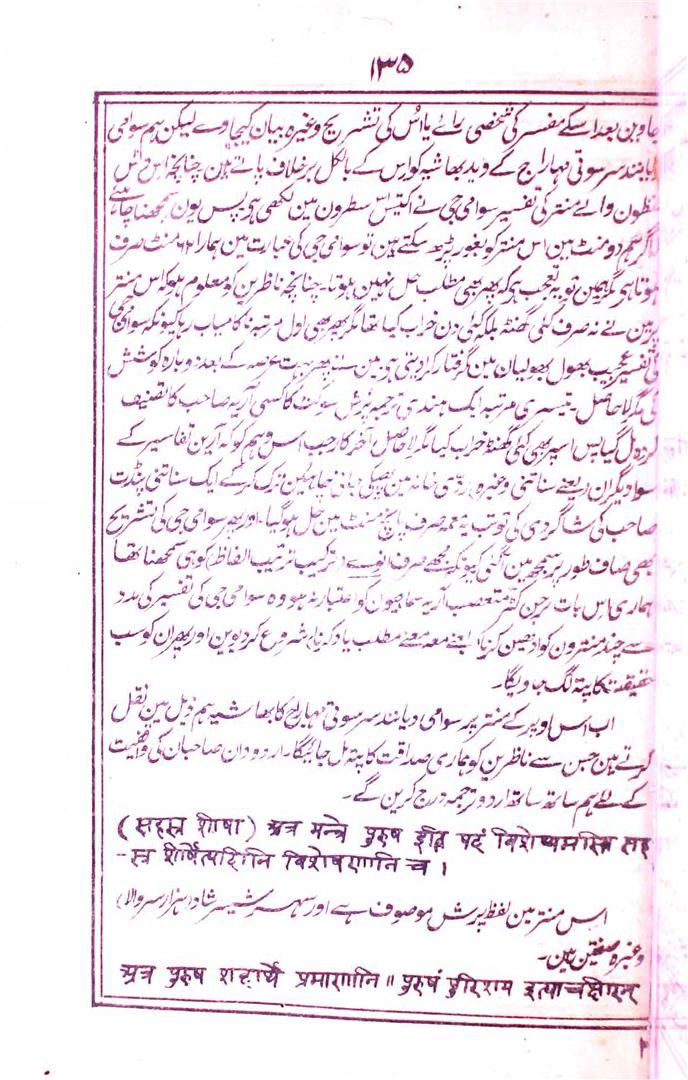 ۱۳۵
جاوین بعد اسکے مفسر کی شخصی رائے یا اُس کی تشریح وغیرہ بیان کیجاوے لیکن ہم سوامی
دیانند سرسوتی مہاراج کے وید بھاشیہ کو اس کے بالکل برخلاف پاتے ہین چنانچہ اس
لفظون والے منتر کی تفسیر سوامی جی نے اکتیس سطرون مین لکھی ہی پس یون سمجھنا چاہئے
کہ اگر ہم دو منٹ مین اس منتر کو بغور پڑھ سکتے ہین تو سوامی جی کی عبارت مین ہمارا ۶۲ منٹ صرف
ہوتا ہی لیکن تو یہ تعجب ہی کہ پھر بھی مطلب حل نہین ہوتا۔ چنانچہ ناظرین کو معلوم ہو کہ اس منتر
پر مین نے نہ صرف کئی گھنٹہ بلکہ کئی دن خراب کیا تھا مگر پھر بھی اول مرتبہ ناکامیاب رہا کیونکہ سوامی جی
کی تفسیر عجیب بھول بھولیان مین گرفتار کر دیتی ہی مین نے پھر بہت عرصہ کے بعد دوبارہ کوشش
کی مگر لاحاصل۔ تیسری مرتبہ ایک ہندی ترجمہ پُرش سوکت کا کسی آریہ صاحب کا تصنیف
کردہ مل گیا پس اسپر بھی کئی گھنٹہ خراب کیا مگر لاحاصل آخر کار جب اس وہم کو کہ آرین تفاسیر کے
سوا دیگران یعنے سناتنی وغیرہ ردی خانہ مین پھینکی جانی چاہئین ترک کر کے ایک سناتنی پنڈت
صاحب کی شاگردی کی تو تب یہ معمہ صرف پانچ منٹ مین حل ہو گیا۔ اور پھر سوامی جی کی تشریح
بھی صاف طور پر سمجھ مین آگئی کیونکہ مجھے صرف انوے (ترکیب ترتیب الفاظ) کو ہی سمجھنا تھا
ہماری اس بات پر جن کٹر متعصب آریہ سماجیون کو اعتبار نہ ہو وہ سوامی جی کی تفسیر کی مدد
سے چند منترون کو ادھین کرنا (یعنے معہ معنے مطلب یاد کرنا) شروع کر دیوین اور پھر ان کو سب
حقیقت کا پتہ لگ جاویگا۔
اب اس اوپر کے منتر پر سوامی دیانند سرسوتی مہاراج کا بھاشیہ ہم ذیل مین نقل
کرتے ہین جس سے ناظرین کو ہماری صداقت کا پتہ مل جائیگا۔ اردو دان صاحبان کی واقفیت
کے لئے ہم ساتھ ساتھ اردو ترجمہ درج کرین گے۔
(सहस्त्र शीषा) अत्र मन्त्रे पुरुष इति पदं विशेष्यमस्ति सह
-स्त्र शीर्षेत्यादीनि विशेषणानि च ।
اس منتر مین لفظ پرش موصوف ہے اور سہسر شیرشا (ہزار سر والا)
وغیرہ صفتین ہین۔
अत्र पुरुष शब्दार्थे प्रमाणानि ॥ पुरुषं पुरिशय इत्याचक्षीरन्